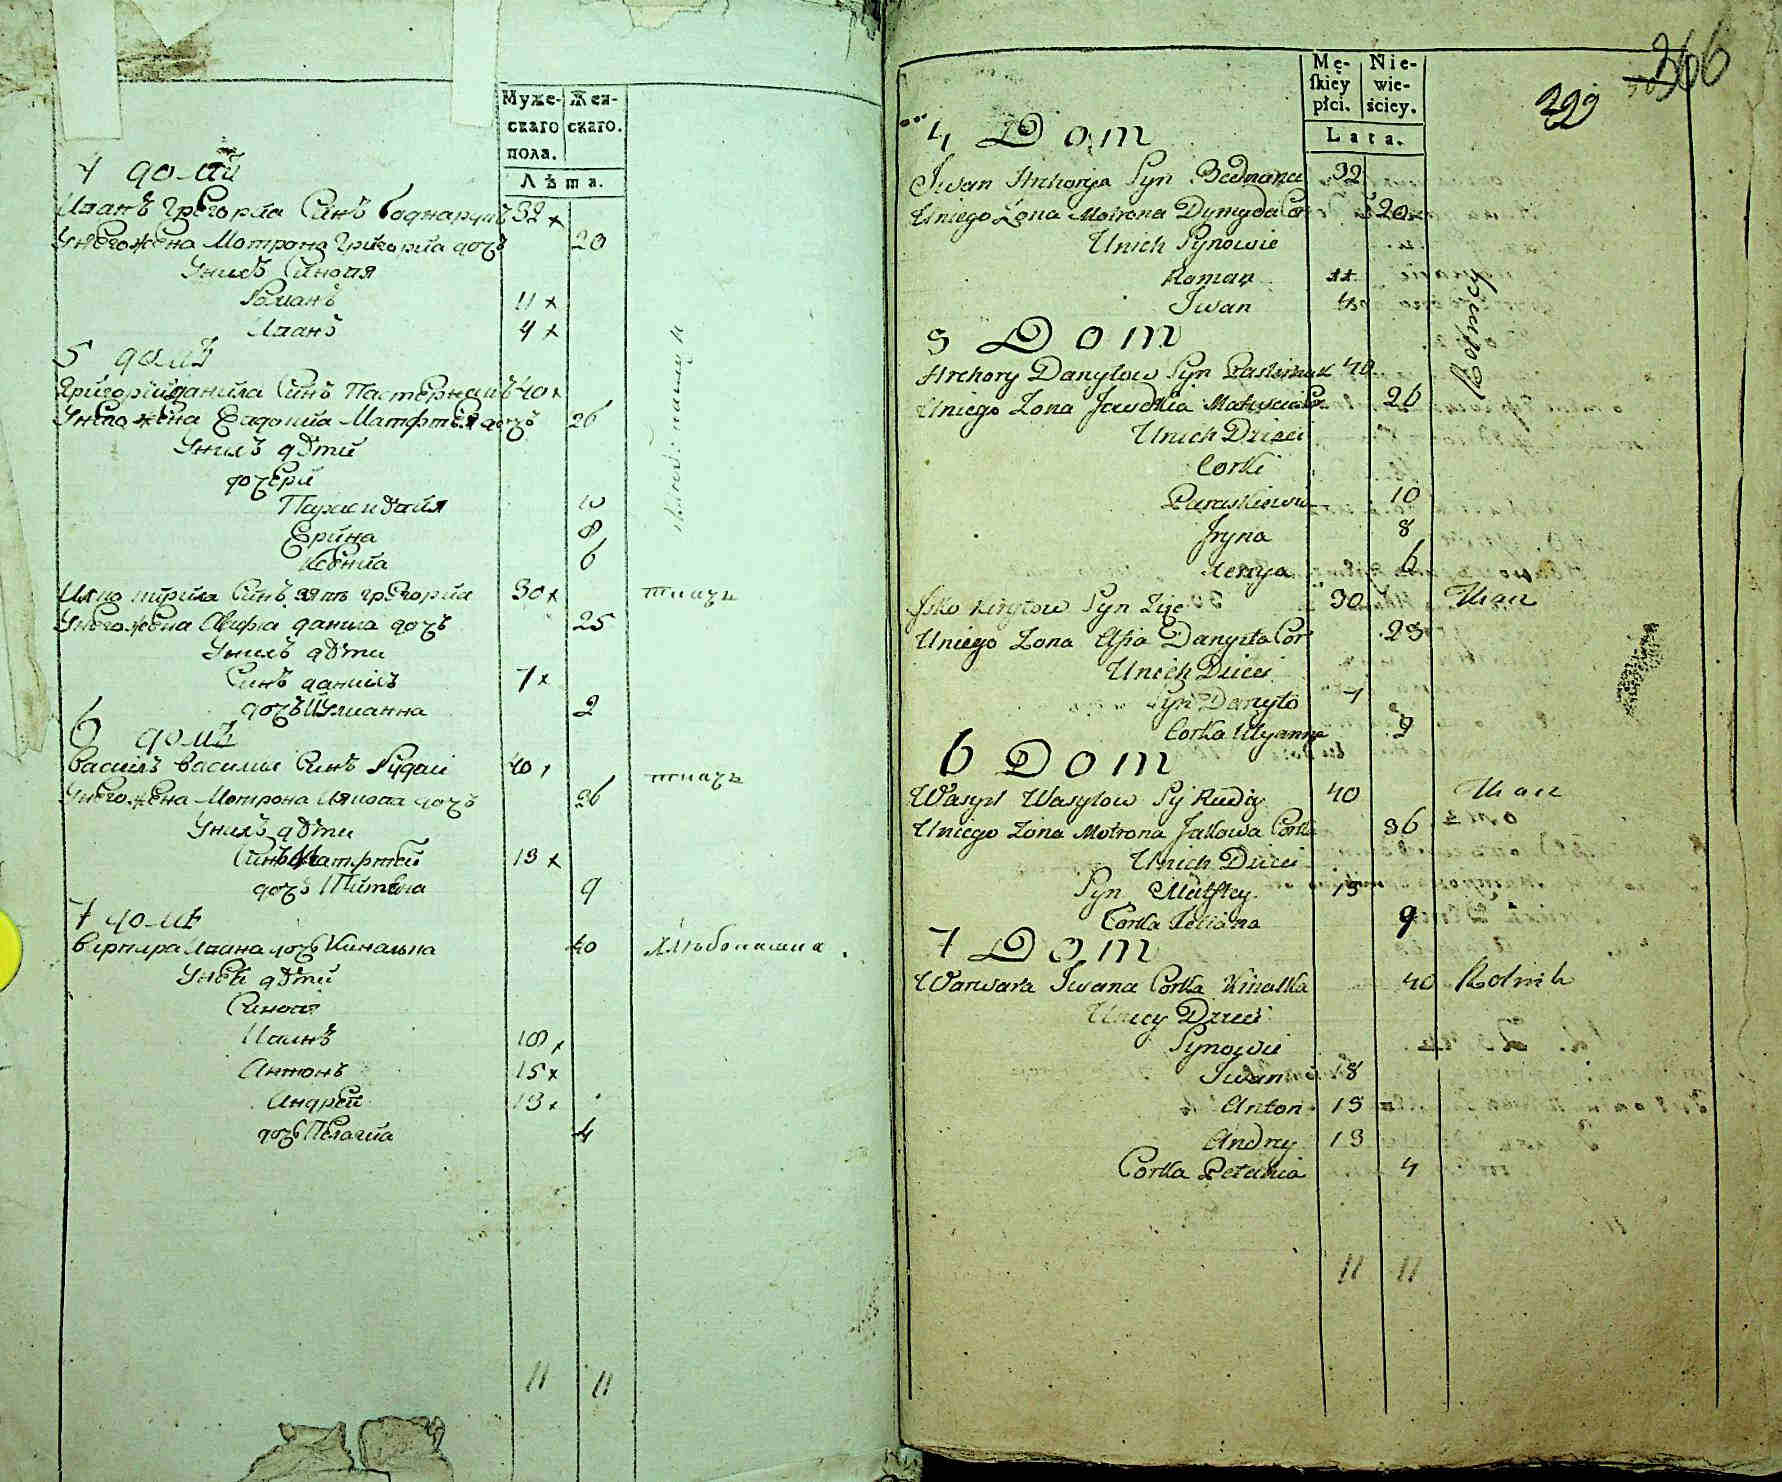 Муже- Жен-
скаго скаго.
пола.
Лѣта.
4 домъ
Иванъ Григорiа Синъ Боднарукъ 32 x
Унегожена Мотрона Григориа дочъ 20
Унихъ Синовя
Романъ 11 x
Иванъ 4 x
5 домъ
Григорiй данила Синъ Пастернакъ 40 x
Унего жена Евдокиа Матфтея дочъ 26
Унихъ дѣти
дочери
Параскѣвiя 10
Ерина 8
Ксѣниа 6
Ияко кирила Синъ зять Григориа 30 x ткачъ
Унегожена данила дочъ 25
Унихъ дѣти
Синъ данилъ 7 x
дочъ Улианна 2
6 домъ
Василъ Василiя Синъ Рудай 40 ткачъ
Унегожена Мотрона Иякова дочъ 26
Унихъ дѣти
Синъ Матфтей 13 x
дочъ 9
7 домъ
Варвара Ивана дочъ Киналка 40 Хлѣбопашца.
Унеи дѣти
Синове
Иванъ 18 x
Антонъ 15 x
Андрей 13 x
дочъ Пелагиа 4
11 11
366
299
Mę- Nie-
skiey wie-
płci. ściey.
Lata.
4 Dom
Jwan Hrehorya Syn Bednaruk 32
Uniego Żona Motrona Dymyda Cor 20
Unich Synowie
Roman 11
Jwan 4
5 Dom
Hrehory Danyłow Syn Pasternak 40
Uniego Zona Jawdkia Matwia Cor 26
Unich Dzieci
Corki
Paraskiewa 10
Jryna 8
Xenya 6
Jsko Kiryłow Syn Zięc 30 Tkacz
Uniego Zona Danyła Cor 25
Unich Dzieci
Syn Danyło 7
Corka Ulyanna 2
6 Dom
Wasyl Wasylow Sy Rudy 40 Tkacz
Uniego Zona Motrona Jakowa Corka 36
Unich Dzieci
Syn Matftey 13
Corka Tetiana 9
7 Dom
Warwara Jwana Corka Kinalka 40 Rolnik
Uniey Dzieci
Synowie
Jwan 18
Anton 15
Andry 13
Corka Pelahia 4
11 11